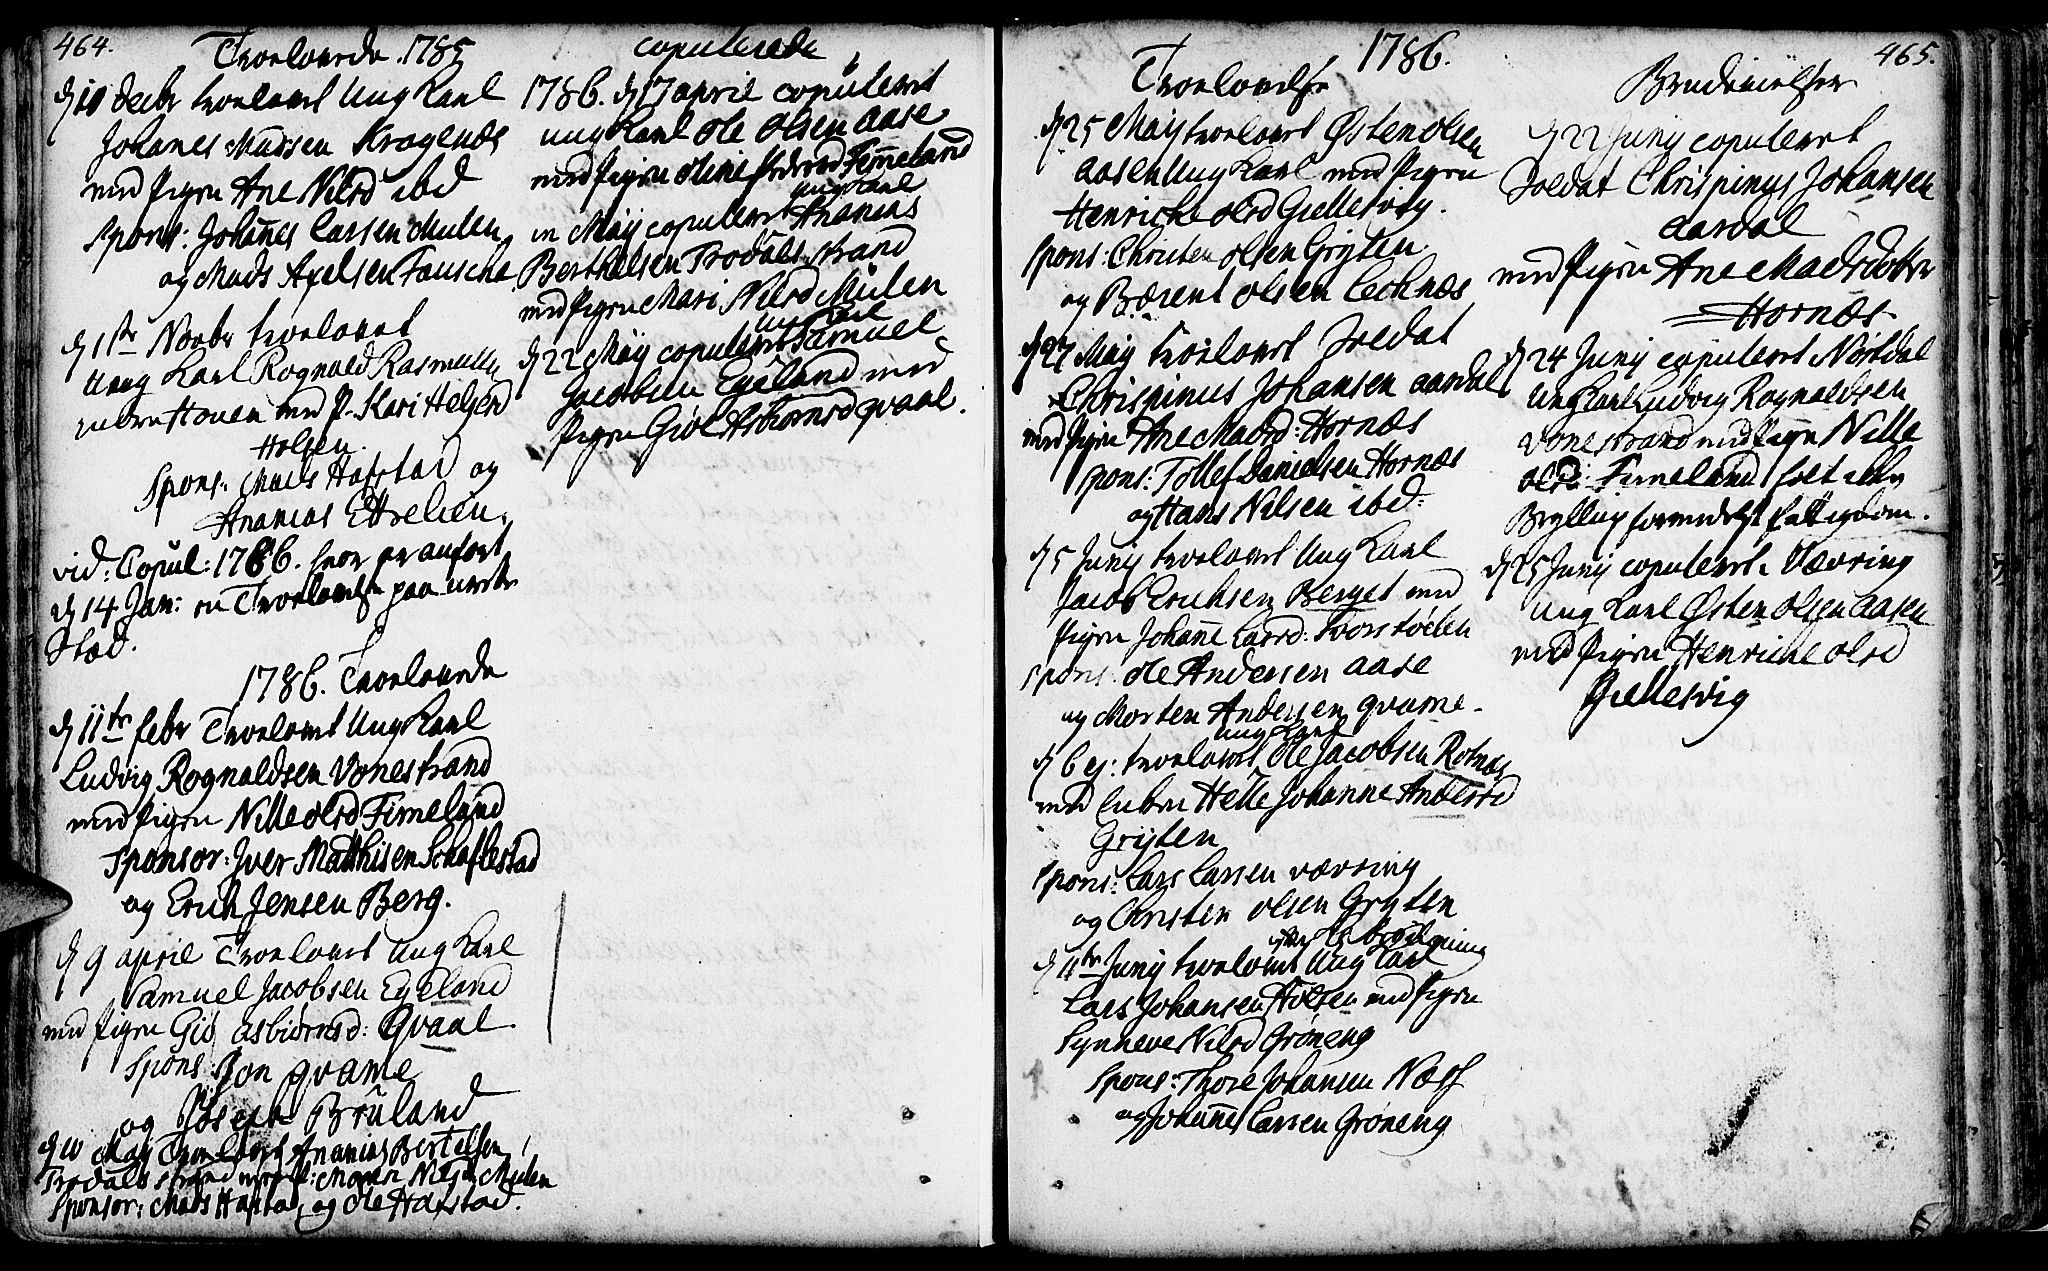 464.
Troelovede 1785
d 10 decbr troelovet Ung Karl
Johanes Madsen Kragenæs
med Pigen Ane Nilsd ibd
Spons: Johanes Larsen Mulen
og Mads Axelsen Fausche
d 11te Novbr troelovet
Ung Karl Rognald Rasmusen
med P. Kari Helgesd
Holsen.
Spons: Mads Hafstad og
Ananias
vid: Copul: 1786. hvor er anført
d 14 Jan: en Troelovelse paa urette
Stæd.
1786. Troelovede
d 11te febr Troelovet Ung Karl
Ludvig Rognaldsen Vonestrand
med Pigen Nille Olsd Fimeland
Sponsor: Iver Matthisen Schaflestad
og Erich Jensen Berg.
d 9 april Troelovet Ung Karl
Samuel Jacobsen Egeland
med Pigen Giø Asbiørnsd: Qvaal.
Spons: Jon Qvame
og Joseph Bruland
d 10 May Troelovet Ananias Bertelsen
Trodals strand med P: Mari Nilsd Mulen
Sponsor: Mads Hafstad, og Ole Hafstad.
copulerede
1786. d 17 april copuleret
ung Karl Ole Olsen Aase
med Pigen Oline Pedersd Fimeland
ung Karl
in May copuleret Ananias
Berthelsen Trodals strand
med Pigen Mari Nilsd Mulen
ung Karl
d 22 May copuleret Samuel
Jacobsen Egeland med
Pigen Giøe Asbiørnsd Qvaal.
1786.
465.
Troelovelse
d 25 May troelovet Østen Olsen
Aasen Ung Karl med Pigen
Henriche Olsd Giellesvig.
Spons: Christen Olsen Gryten
og Bærent Olsen Lechnæs
d 27 May troelovet Soldat
Chrispinus Johansen Aardal
med Pigen Ane Madsd: Hornæs
Spons: Tollef Danielsen Hornæs
og Hans Nilsen ibd:
d 5 Junij troelovet Ung Karl
Jacob Erichsen Berget med
Pigen Johanne Larsd: Svorstølen
Spons: Ole Andersen Aase
og Morten Andersen Qvame.
ung Karl
d 6 ej: troelovet Ole Jacobsen Rotnæs
med Enken Helle Johanne Andersd
Gryten
Spons: Lars Larsen Værring
og Christen Olsen Gryten
d 11te Junij troelovet Ung Karl
Lars Johansen Holsen med Pigen
Synneve Nilsd Grøneng
Spons: Thore Johansen Næss
og Johannes Larsen Grøneng
Brudevielser
d 22 Junij copuleret
Soldat Chrispinus Johansen
Aardal
med Pigen Ane Madsdotter
Hornæs
d 24 Junij copuleret Nøsdal
Ung Karl Ludvig Rognaldsen
Vonestrand med Pigen Nille
Olsd: Fimeland holt ichè
Bryllup formedelst fattigdom.
d 25 Junij copuleret i Vævring
Ung Karl Østen Olsen Aasen
med Pigen Henriche Olsd
Giellesvig